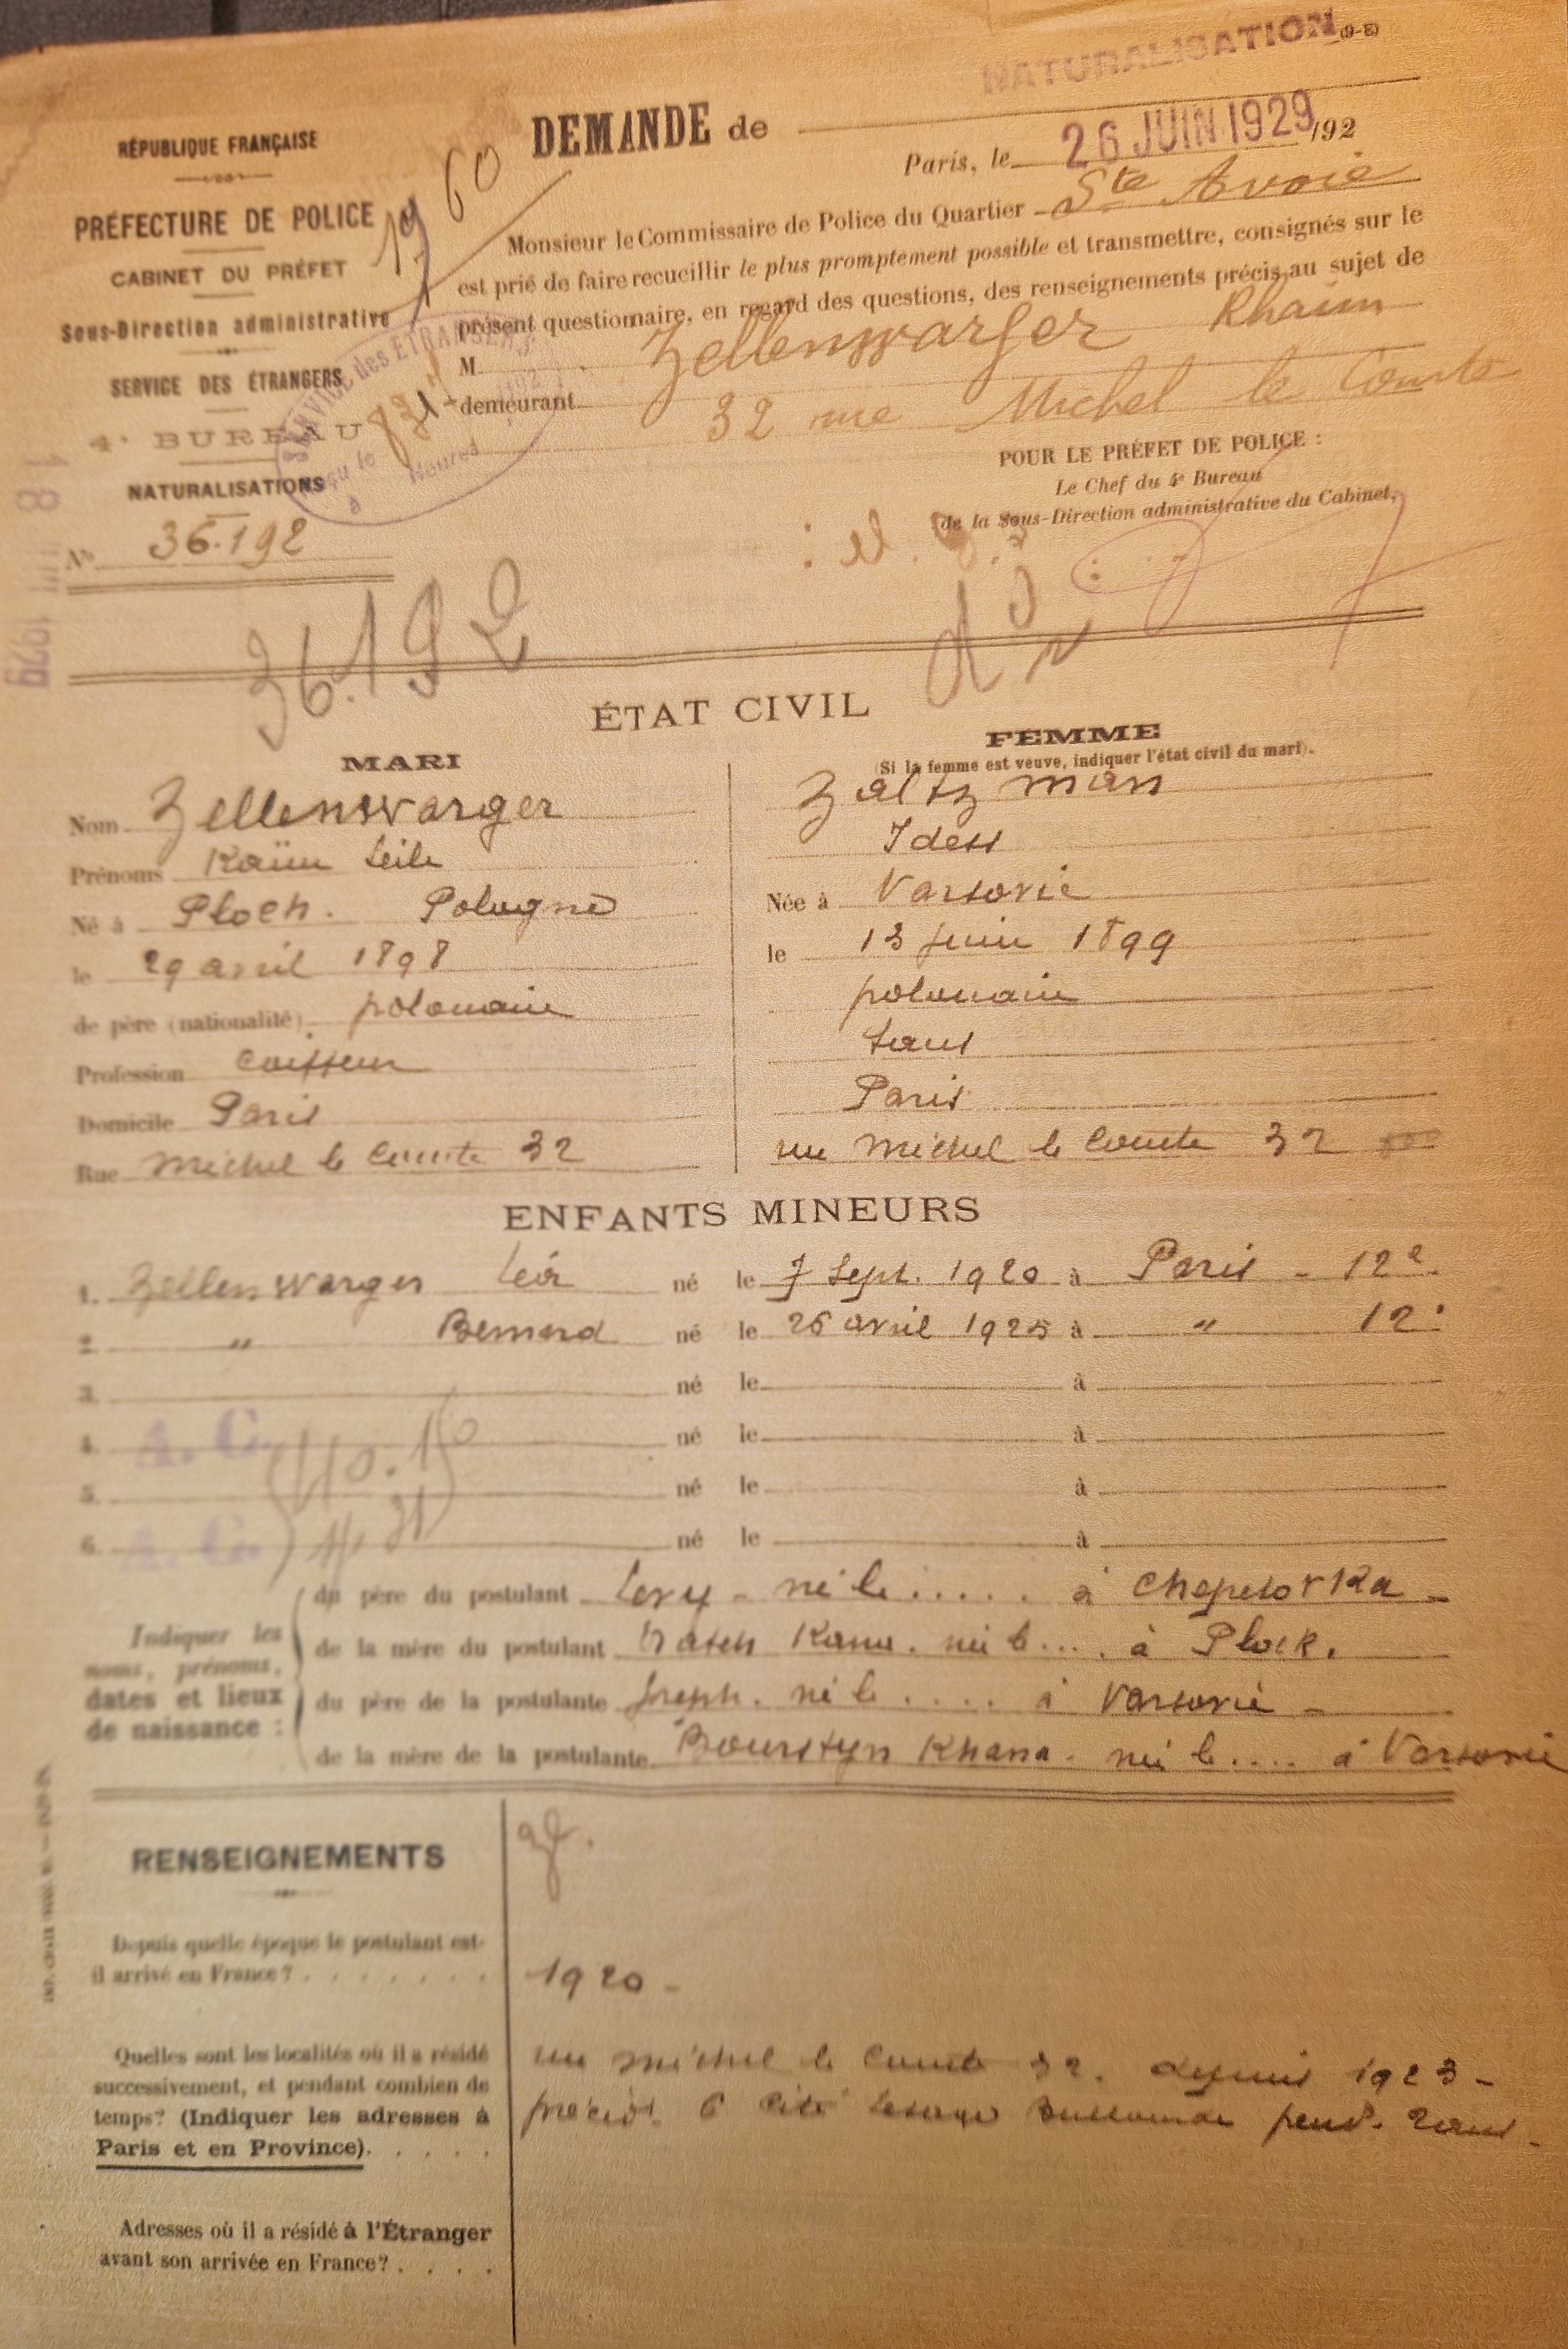 NATURALISATION (9-E)
DEMANDE de
RÉPUBLIQUE FRANÇAISE
Paris, le 26 JUIN 1929 192
PRÉFECTURE DE POLICE
CABINET DU PRÉFET
Sous-Direction administrative
SERVICE DES ÉTRANGERS
4e BUREAU
NATURALISATIONS
No 36.192
Monsieur le Commissaire de Police du Quartier Ste Avoie
est prié de faire recueillir le plus promptement possible et transmettre, consignés sur le
présent questionnaire, en regard des questions, des renseignements précis au sujet de
M Zellenwarger Khaim
demeurant 32 rue Michel le Comte
SERVICE des ÉTRANGERS
Reçu le
à Heures
POUR LE PRÉFET DE POLICE :
Le Chef du 4e Bureau
de la Sous-Direction administrative du Cabinet,
36.192
ÉTAT CIVIL
MARI
Nom Zellenwarger
Prénoms Kaïm Leib
Né à Ploch. Pologne
le 29 avril 1898
de père (nationalité) polonaise
Profession Coiffeur
Domicile Paris
Rue Michel le Comte 32
FEMME
(Si la femme est veuve, indiquer l'état civil du mari).
Zaltzman
Idess
Née à Varsovie
le 13 juin 1899
polonaise
Sans
Paris
rue Michel le Comte 32
ENFANTS MINEURS
1. Zellenwarger né le 7 Sept. 1920 à Paris - 12e
2. " Bernard né le 26 avril 1925 à " 12e
3. né le à
4. né le à
5. né le à
6. né le à
A. C.
A. C.
Indiquer les
noms, prénoms,
dates et lieux
de naissance :
du père du postulant Levy - né le ..... à Chepetovka -
de la mère du postulant Kana. née le .... à Plock.
du père de la postulante Joseph. né le ..... à Varsovie -
de la mère de la postulante Bourstyn Khana. née le .... à Varsovie
RENSEIGNEMENTS
Depuis quelle époque le postulant est-
il arrivé en France ? . . . . . . .
1920 -
Quelles sont les localités où il a résidé
successivement, et pendant combien de
temps? (Indiquer les adresses à
Paris et en Province). . . . .
rue Michel le Comte 32. depuis 1923 -
précéd. 6 Cité Lesage Bullourde pend. 2 ans -
Adresses où il a résidé à l'Étranger
avant son arrivée en France ? . . . .